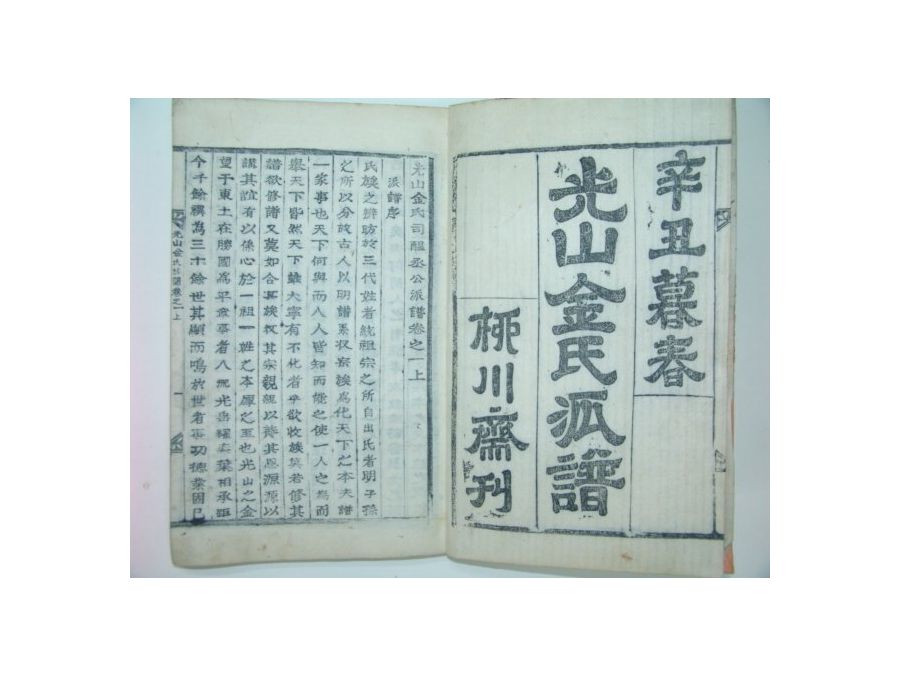 辛丑暮春
光山金氏派譜
柳川齋刊
光山金氏司醞丞公派譜卷之一上
派譜序
氏族之辨昉於三代姓者統祖宗之所自出氏者明子孫
之所以分故古人以明譜系收宗族爲化天下之本夫譜
一家事也天下何與而人人皆知而能之使一人之爲而
舉天下皆然天下雖大寧有不化者乎欲收族莫若修其
譜欲修譜又莫如合其族收其宗親親以篤其恩源源以
講其誼有以係心於一祖一姓之本原之至也光山之金
望于東土在勝國爲平章事者八祀光岳繼葉相承距
今千餘禩爲三十餘世其顯而鳴於世者事功德業固已